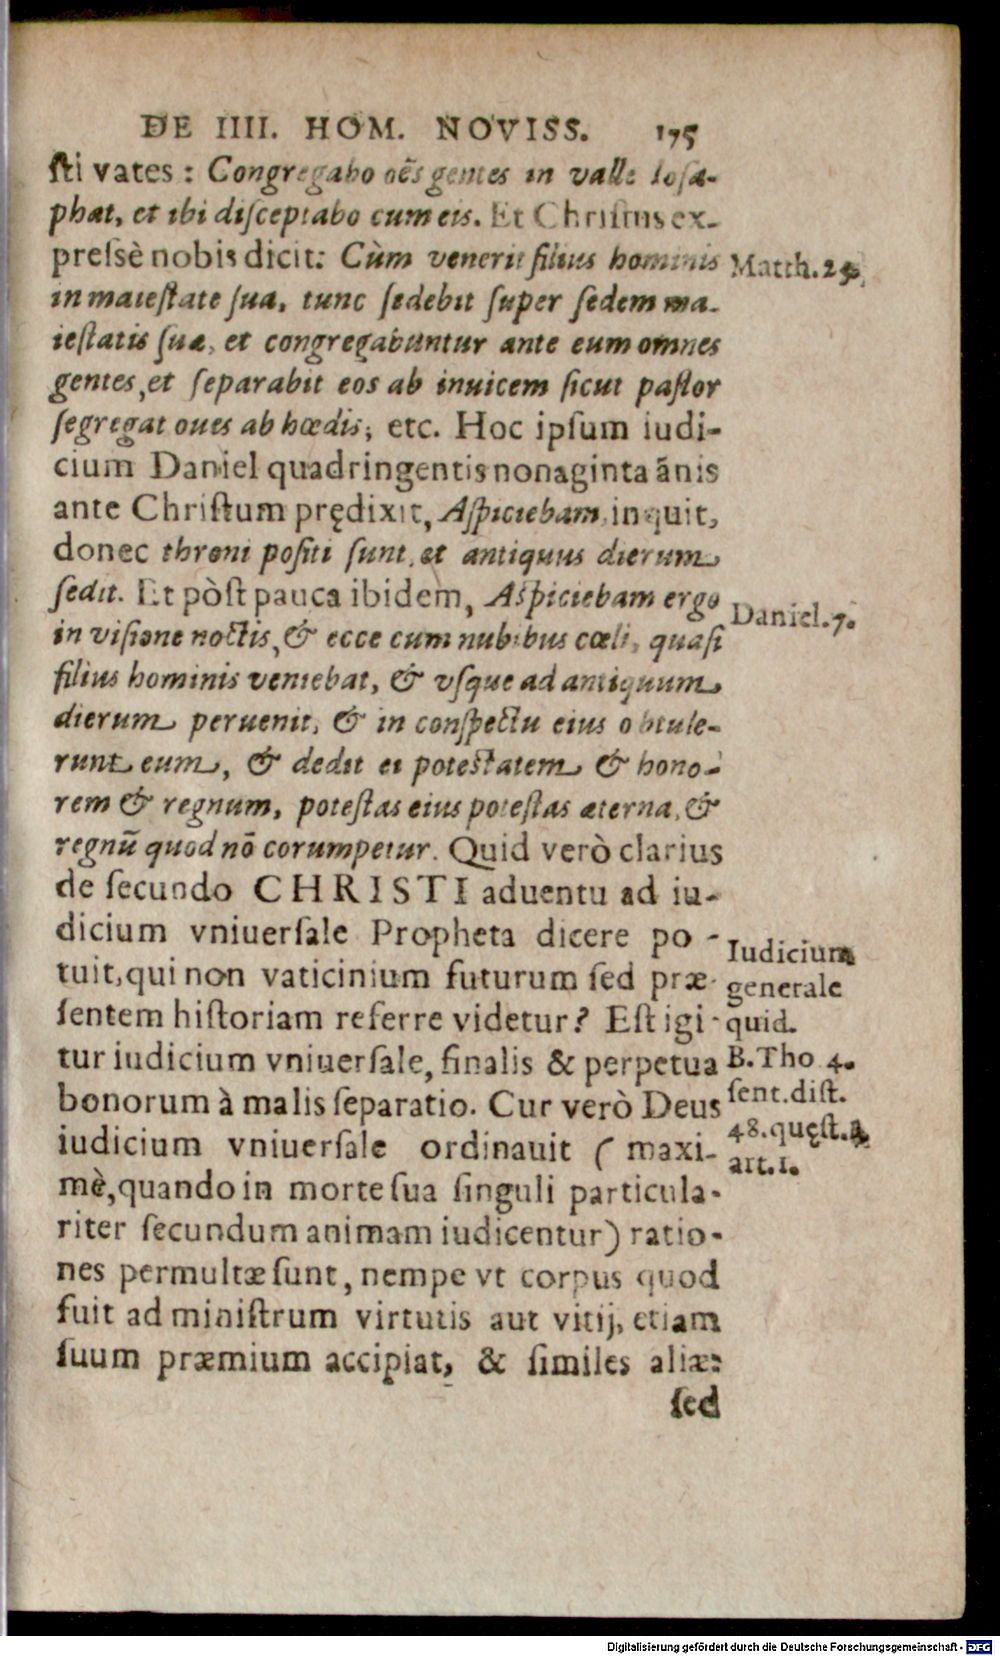 DE IIII. HOM. NOVISS. 175
ſti vates : Congregabo oēs gentes in valle Ioſa-
phat, et ibi diſceptabo cum eis. Et Chriſtus ex-
preſsè nobis dicit: Cùm venerit filius hominis
in maieſtate ſua, tunc ſedebit ſuper ſedem ma-
ieſtatis ſuæ, et congregabuntur ante eum omnes
gentes, et ſeparabit eos ab inuicem ſicut paſtor
ſegregat oues ab hœdis, etc. Hoc ipſum iudi-
cium Daniel quadringentis nonaginta ãnis
ante Chriſtum prędixit, Aſpiciebam, inquit,
donec throni poſiti ſunt, et antiquus dierum
ſedit. Et pòſt pauca ibidem, Aſpiciebam ergo
in viſione noctis, & ecce cum nubibus cœli, quaſi
filius hominis veniebat, & vſque ad antiquum
dierum peruenit, & in conſpectu eius obtule-
runt eum, & dedit ei poteſtatem & hono-
rem & regnum, poteſtas eius poteſtas æterna, &
regnū quod nō corumpetur. Quid verò clarius
de ſecundo CHRISTI aduentu ad iu-
dicium vniuerſale Propheta dicere po-
tuit, qui non vaticinium futurum ſed præ-
ſentem hiſtoriam referre videtur? Eſt igi-
tur iudicium vniuerſale, finalis & perpetua
bonorum à malis ſeparatio. Cur verò Deus
iudicium vniuerſale ordinauit ( maxi-
mè, quando in morte ſua ſinguli particula-
riter ſecundum animam iudicentur) ratio-
nes permultæ ſunt, nempe vt corpus quod
fuit ad miniſtrum virtutis aut vitij, etiam
ſuum præmium accipiat, & ſimiles aliæ:
ſed
Matth.
Daniel. 7.
Iudicium
generale
quid.
B. Tho 4.
ſent. diſt.
48. quęſt.
art. 1.
Digitalisierung gefördert durch die Deutsche Forschungsgemeinschaft - DFG